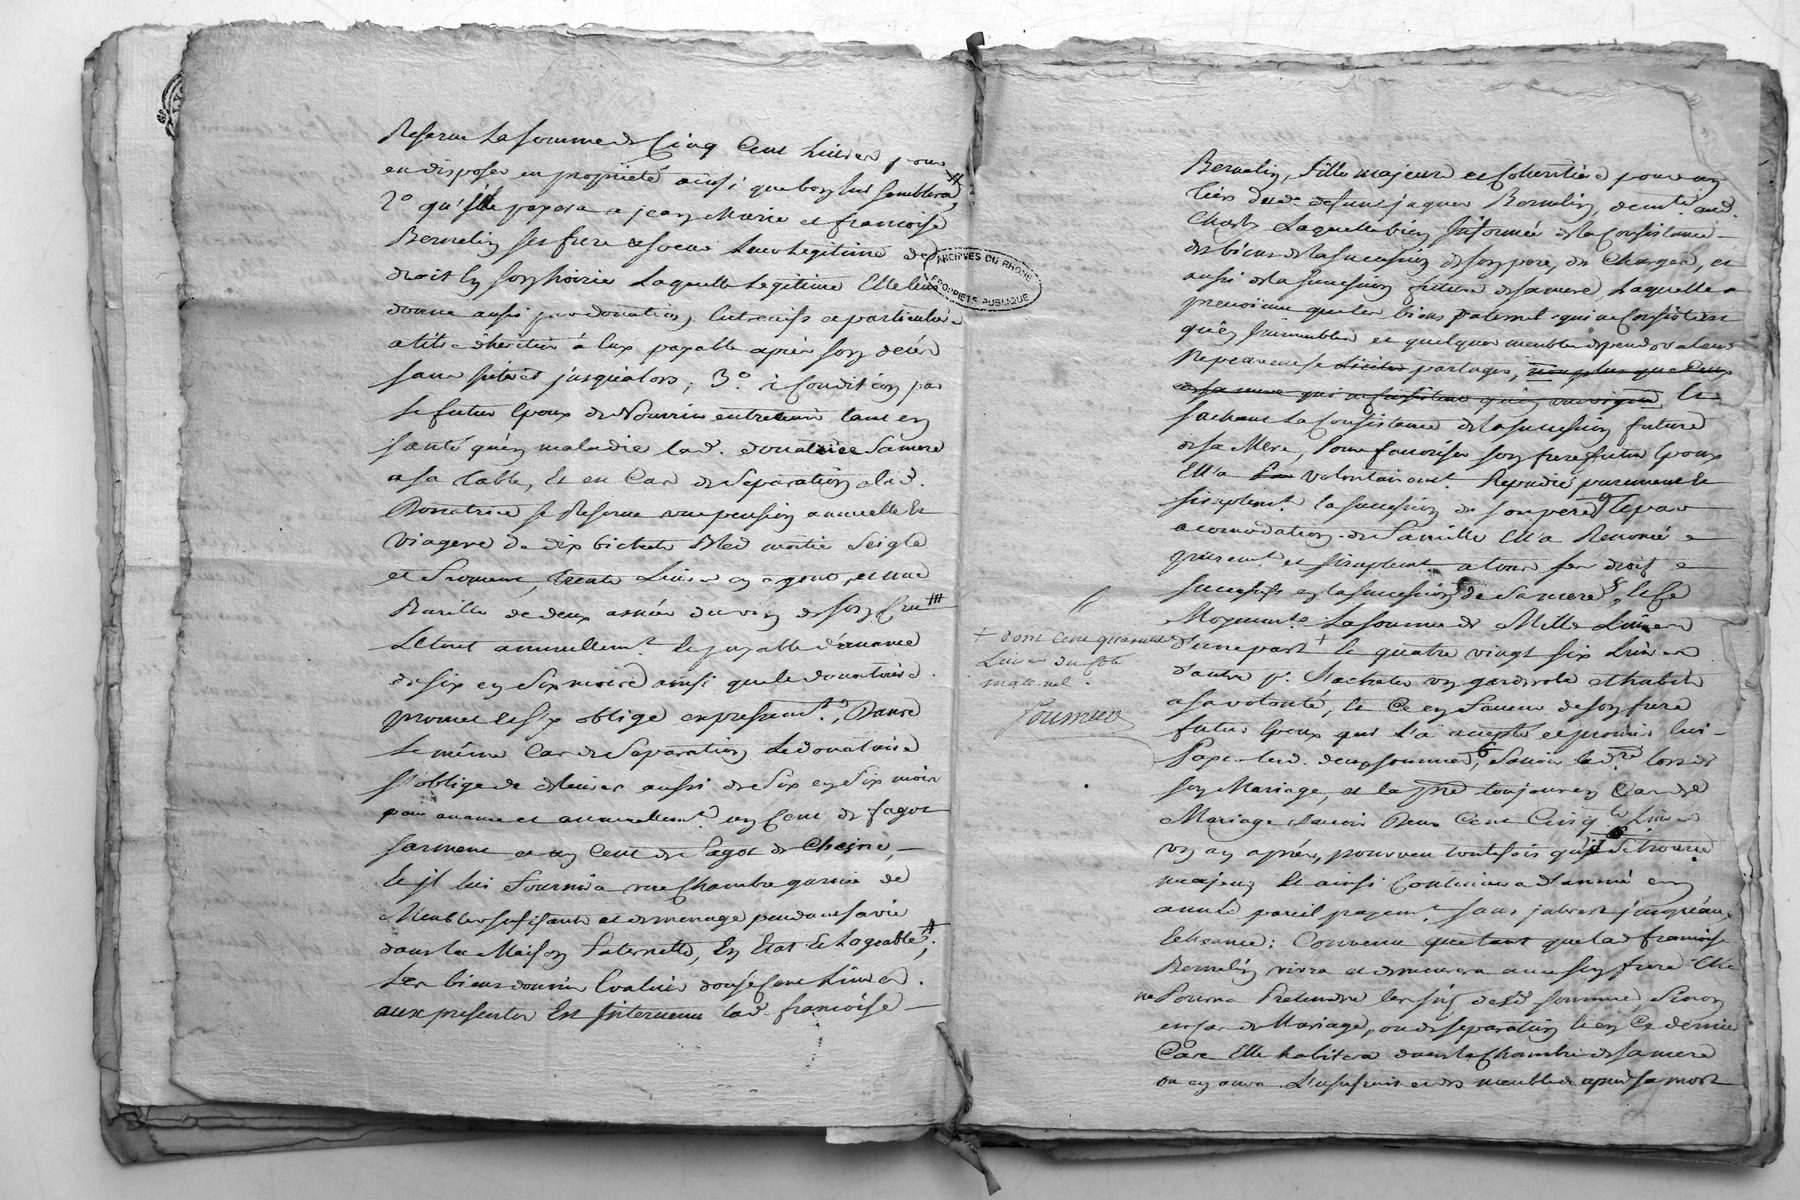 Reserve La somme de Cinq Cent Livres pour
en disposer en propriété ainsi que bon lui semblera,
2° qu'il payera a jean Marie et francoise
Bernelin ses frere et soeur Leur Legitime de
droit en son hoirie Laquelle Legitime Elle leur
donne aussi par donation Entrevifs et particulière
a titre d'héritier à Eux payable après son decés
sans interet jusqu'alors, 3° à Condition par
le futur Epoux de Nourrir entretenir tant en
santé qu'en maladie lad. donatrice Sa mere
a sa table, Et en Cas de Separation lad.
Donatrice se Reserve une pension annuelle et
Viagere de dix bichets Bled moitié Seigle
et froment, trente Livres en argent, et une
Barille de deux asnées du vin de son Cru
Le tout annuellemt. et payable d'avance
de six en six mois ainsi que le donataire
promet et s'y oblige expressemt., Dans
le même Cas de Separation Le donataire
s'oblige de delivrer aussi de Six en Six mois
par avance et annuellemt. un Cent de fagot
sarment et un Cent de fagot de Chesne,
Et il lui Fournira une Chambre garnie de
Meubles suffisants et de menage pendant sa vie
dans la Maison Paternelle, En Etat et Logeable,
Les biens donnés Evalués Livres.
aux presentes Est intervenue lad. francoise
ARCHIVES DU RHONE
PROPRIETE PUBLIQUE
Bernelin, fille majeure et Coheritière pour un
tiers dud. defunt jaques Bernelin, demte. aud.
Laquelle bien Informée de la Consistance
des biens de la succession de son pere, des Charges, et
aussi de la succession future de sa mere, Laquelle
que les biens paternel qui ne Consistent
qu'en Immeubles et quelques meubles de peu de valeur
ne peuvent se diviser partager, non plus que Ceux
de sa mere qui ne Consistent qu'en Et
sachant La Consistance de la succession future
de sa Mere, Pour favoriser son frere futur Epoux
Ell'a volontairemt. Repudié purement et
simplemt. la succession de son pere Et par
acomodation de famille Ell'a Renoncé
puremt. et simplemt. a tous ses droits
successifs en la succession de Sa mere, Et Ce
Moyennt. La somme de Mille Livres
+ dont Cent quarante
Livres du Chef
maternel.
Fournier
d'une part + Et quatre vingt six Livres
d'autre pr. S'acheter un garderobe et habits
a sa volonté, Et Ce en faveur de son frere
futur Epoux qui l'a accepté et promis lui
Payer lesd. deux sommes, Savoir la dre. lors de
son Mariage, et la pre. toujours en Cas de
Mariage savoir Deux Cent Cinqte. Livres
un an après, pourveu toutefois qu'il Se trouve
majeur Et ainsi Continuer d'année en
année pareil payemt. sans interest jusqu'au
Echeance; Convenu que tant que lad. francoise
Bernelin vivra et demeurera avec son frere Elle
ne Pourra Pretendre desd. sommes Sinon
en Cas de Mariage, ou de separation Et en Ce dernier
Cas Elle habitera dans la Chambre de sa mere
ou en aura L'usufruit et des meubles après sa mort